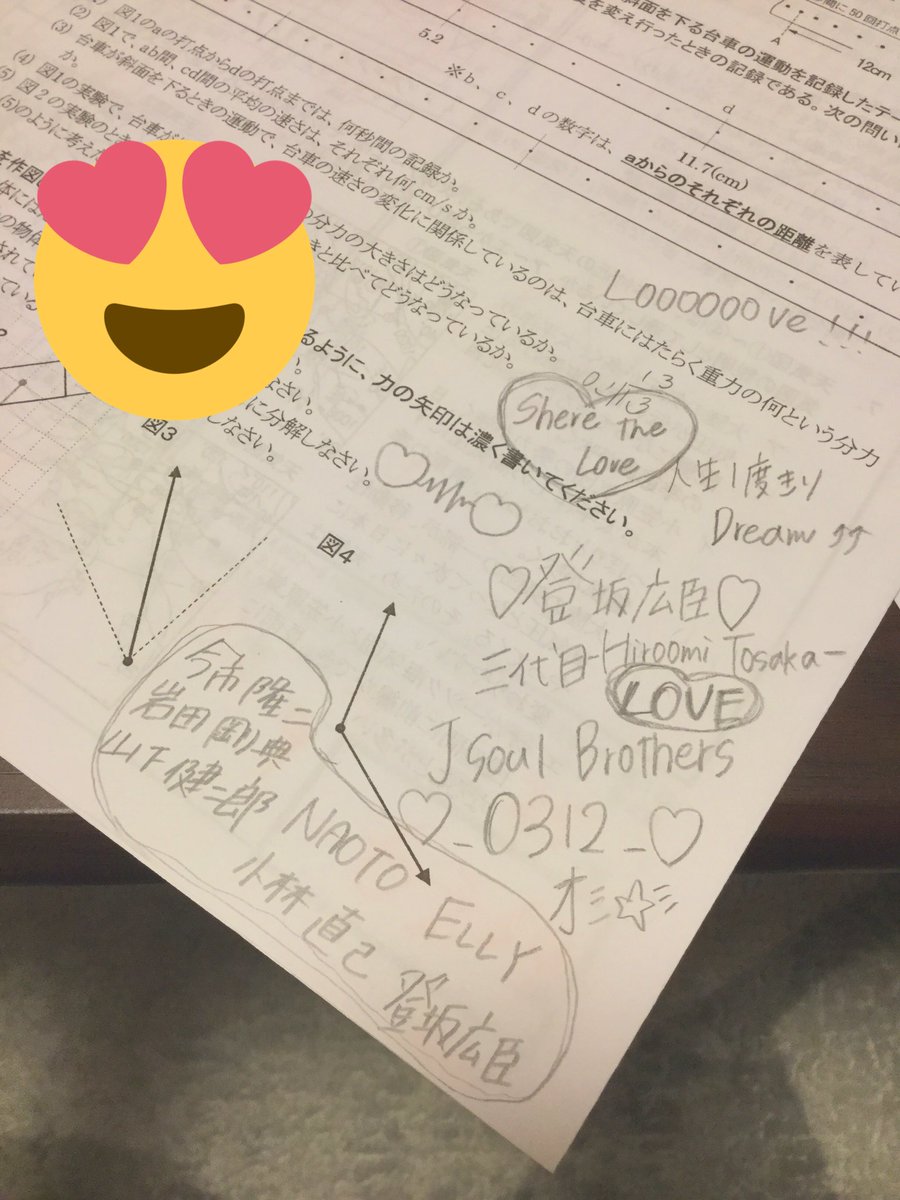 間に50回打点
A
12cm
斜面を下る台車の運動を記録したテー
を変え行ったときの記録である。次の問い
5.2
d
11.7(cm)
※b、c、dの数字は、aからのそれぞれの距離を表してい
(1) 図1のaの打点からdの打点までは、何秒間の記録か。
(2) 図1で、ab間、cd間の平均の速さは、それぞれ何cm/sか。
(3) 台車が斜面を下るときの運動で、台車の速さの変化に関係しているのは、台車にはたらく重力の何という分力
か。
(4) 図1の実験で、台車が
分力の大きさはどうなっているか。
(5) 図2の実験のとき
きと比べてどうなっているか。
(5)のように考えた
を作図
るように、力の矢印は濃く書いてください。
なさい。
に分解しなさい。
しなさい。
図3
図4
Loooooove!!!
13
0.1)1.3
Shere the
Love
人生1度きり
Dream↑↑
♡〰♡
♡登坂広臣♡
三代目-Hiroomi Tosaka-
LOVE
J Soul Brothers
♡_0312_♡
オミ☆彡
今市隆二
岩田剛典
山下健二郎
NAOTO
小林直己
ELLY
登坂広臣